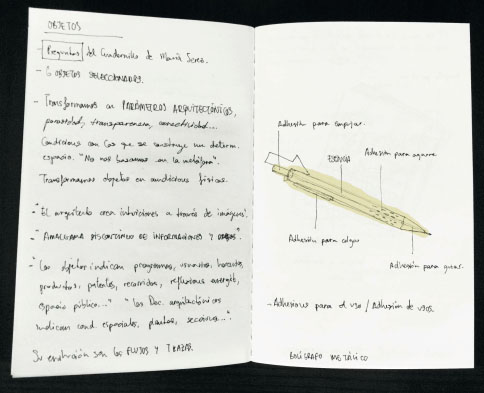 OBJETOS
- Preguntas del Cuadernillo de María Jerez.
- 6 OBJETOS SELECCIONADOS.
- Transformamos en PARÁMETROS ARQUITECTÓNICOS,
porosidad, transparencia, conectividad...
Condiciones con las que se construye un determ.
espacio. "No nos basamos en la metáfora".
Transformamos objetos en condiciones físicas.
- "El arquitecto crea intuiciones a través de imágenes".
- "AMALGAMA DISCONTINUA DE INFORMACIONES Y
- "Los objetos indican programas, usuarios, horarios,
productos, patentes, recorridos, energét,
espacio público..." "los Doc. arquitectónicos
indican cond. espaciales, plantas, secciones..."
Su evolución son los FLUJOS Y TRAZAS.
Adhesión para empujar.
ESENCIA
Adhesión para agarre
Adhesión para colgar
Adhesión para guiar.
- Adhesiones para el uso / Adhesión de usos.
BOLÍGRAFO METÁLICO